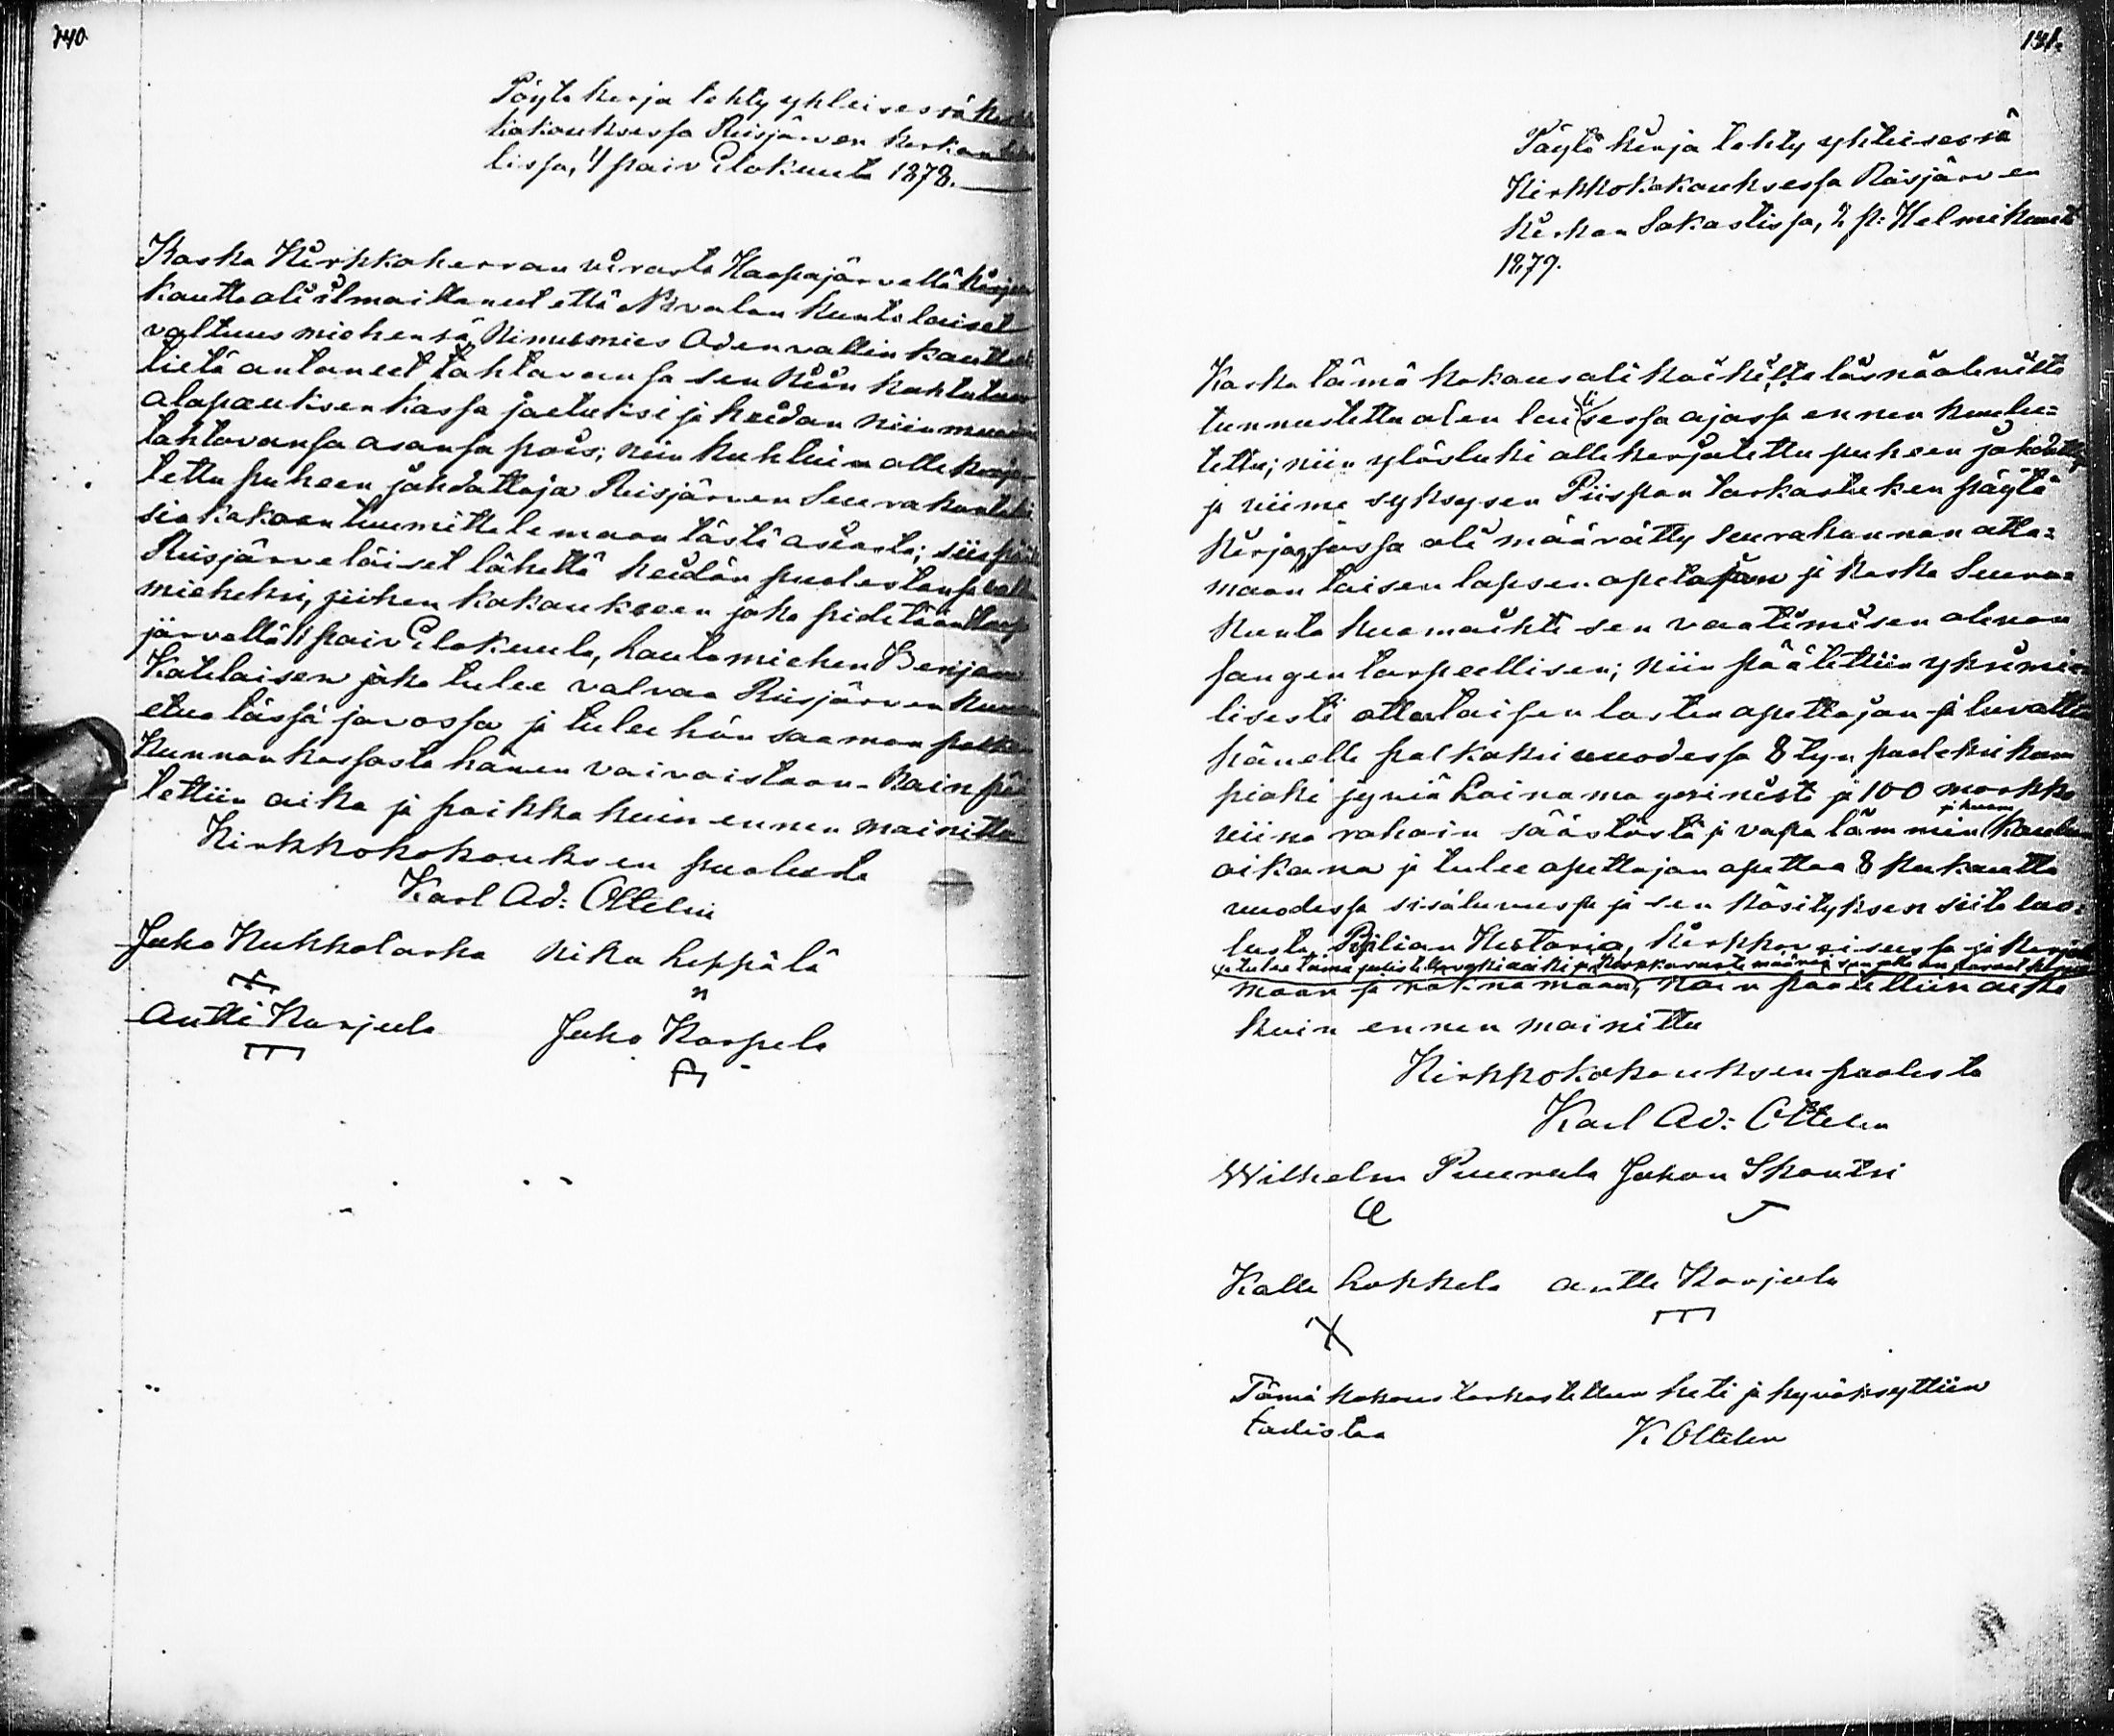 140
Pöytä kirja tehty yhleisessä
kokouksessa Reisjärven kirkon
tissa, 11 paiv Elokuuta 1878.
Koska Kirkkoherran virasto Haapajärvellä kirjan
kautta oli ilmoittanut että Nivalan kuntalaiset
valtuusmiehensä Nimismies Adenvallin kautta
tietä antaneet tahtovansa sen niin kohtutun
alapauksen kassa jaetuksi ja heidän niin muodin
tahtovansa asansa pois; niin kuhluin alle kirja-
tettu puheen johdattaja Reisjärven Seurakuntalai
sia kokoontuu mittelemaan tästä asiasta; siis
Reisjärveläiset lähettä heidän puolestansa
mieheksi, siihen kokoukseen joka pidetään Haapa
järvellä paiv Elokuuta, Lautamiehen Benjam
Katelaisen joka tulee valvoa Reisjärven kunnan
etua tässä jaossa ja tulee hän saamaan palkan
Kunnan kassasta hänen vaivoistaan. Nain pää
tettiin aika ja paikka kuin ennen mainittu
Kirkkokokouksen puolesta
Karl Ad: Ottelin
Juho Kukkolarha Nika Leppälä
Antti Karjula Juho Karpela
141.
Pöytä kirja tehty yhteisessä
Kirkkokokouksessa Räisjärven
kirkon Sakastissa, 2 p: Helmikuuta
1879.
Koska tämä kokous oli kaikilta läsnäolevilta
tunnustettu olen lailisessa ajassa ennen kuulu=
tettu; niin ylösluki alle kirjoitettu puheen johdattaja
ja viime syksysen Piispan tarkastuksen pöytä
kirjan jossa oli määrätty seurakunnan otta=
maan laisen lapsen apetajan ja koska Seura=
kunta huomaitti sen vaatimisen olevan
sangen tarpeellisen; niin päätettiin yksimie=
lisesti ottaa laisen lasten apettajan ja luvattiin
hänelle palkaksi vuodessa 8 tyn puoleksi kum
piaki jyviä Lainamagasinista ja 100 markka
viina rahain säästöstä ja vapa lämmin ja huone koulun
aikana ja tulee apettajan apettaa 8 kukautta
vuodessa sisäluvussa ja sen käsityksen siita luv:
lusta, Biblian Historia, kirkkoveisussa ja kirjoit
maan ja näin päätettiin aika
kuin ennen mainittu
Kirkkokokouksen puolesta
Karl Ad: Ottelin
Wilhelm Puurula Johan Skantsi
Kalle Lokkela Antti Karjula
Tämä kokous tarkastettiin heti ja hyväksyttiin
todistaa K Ottelin